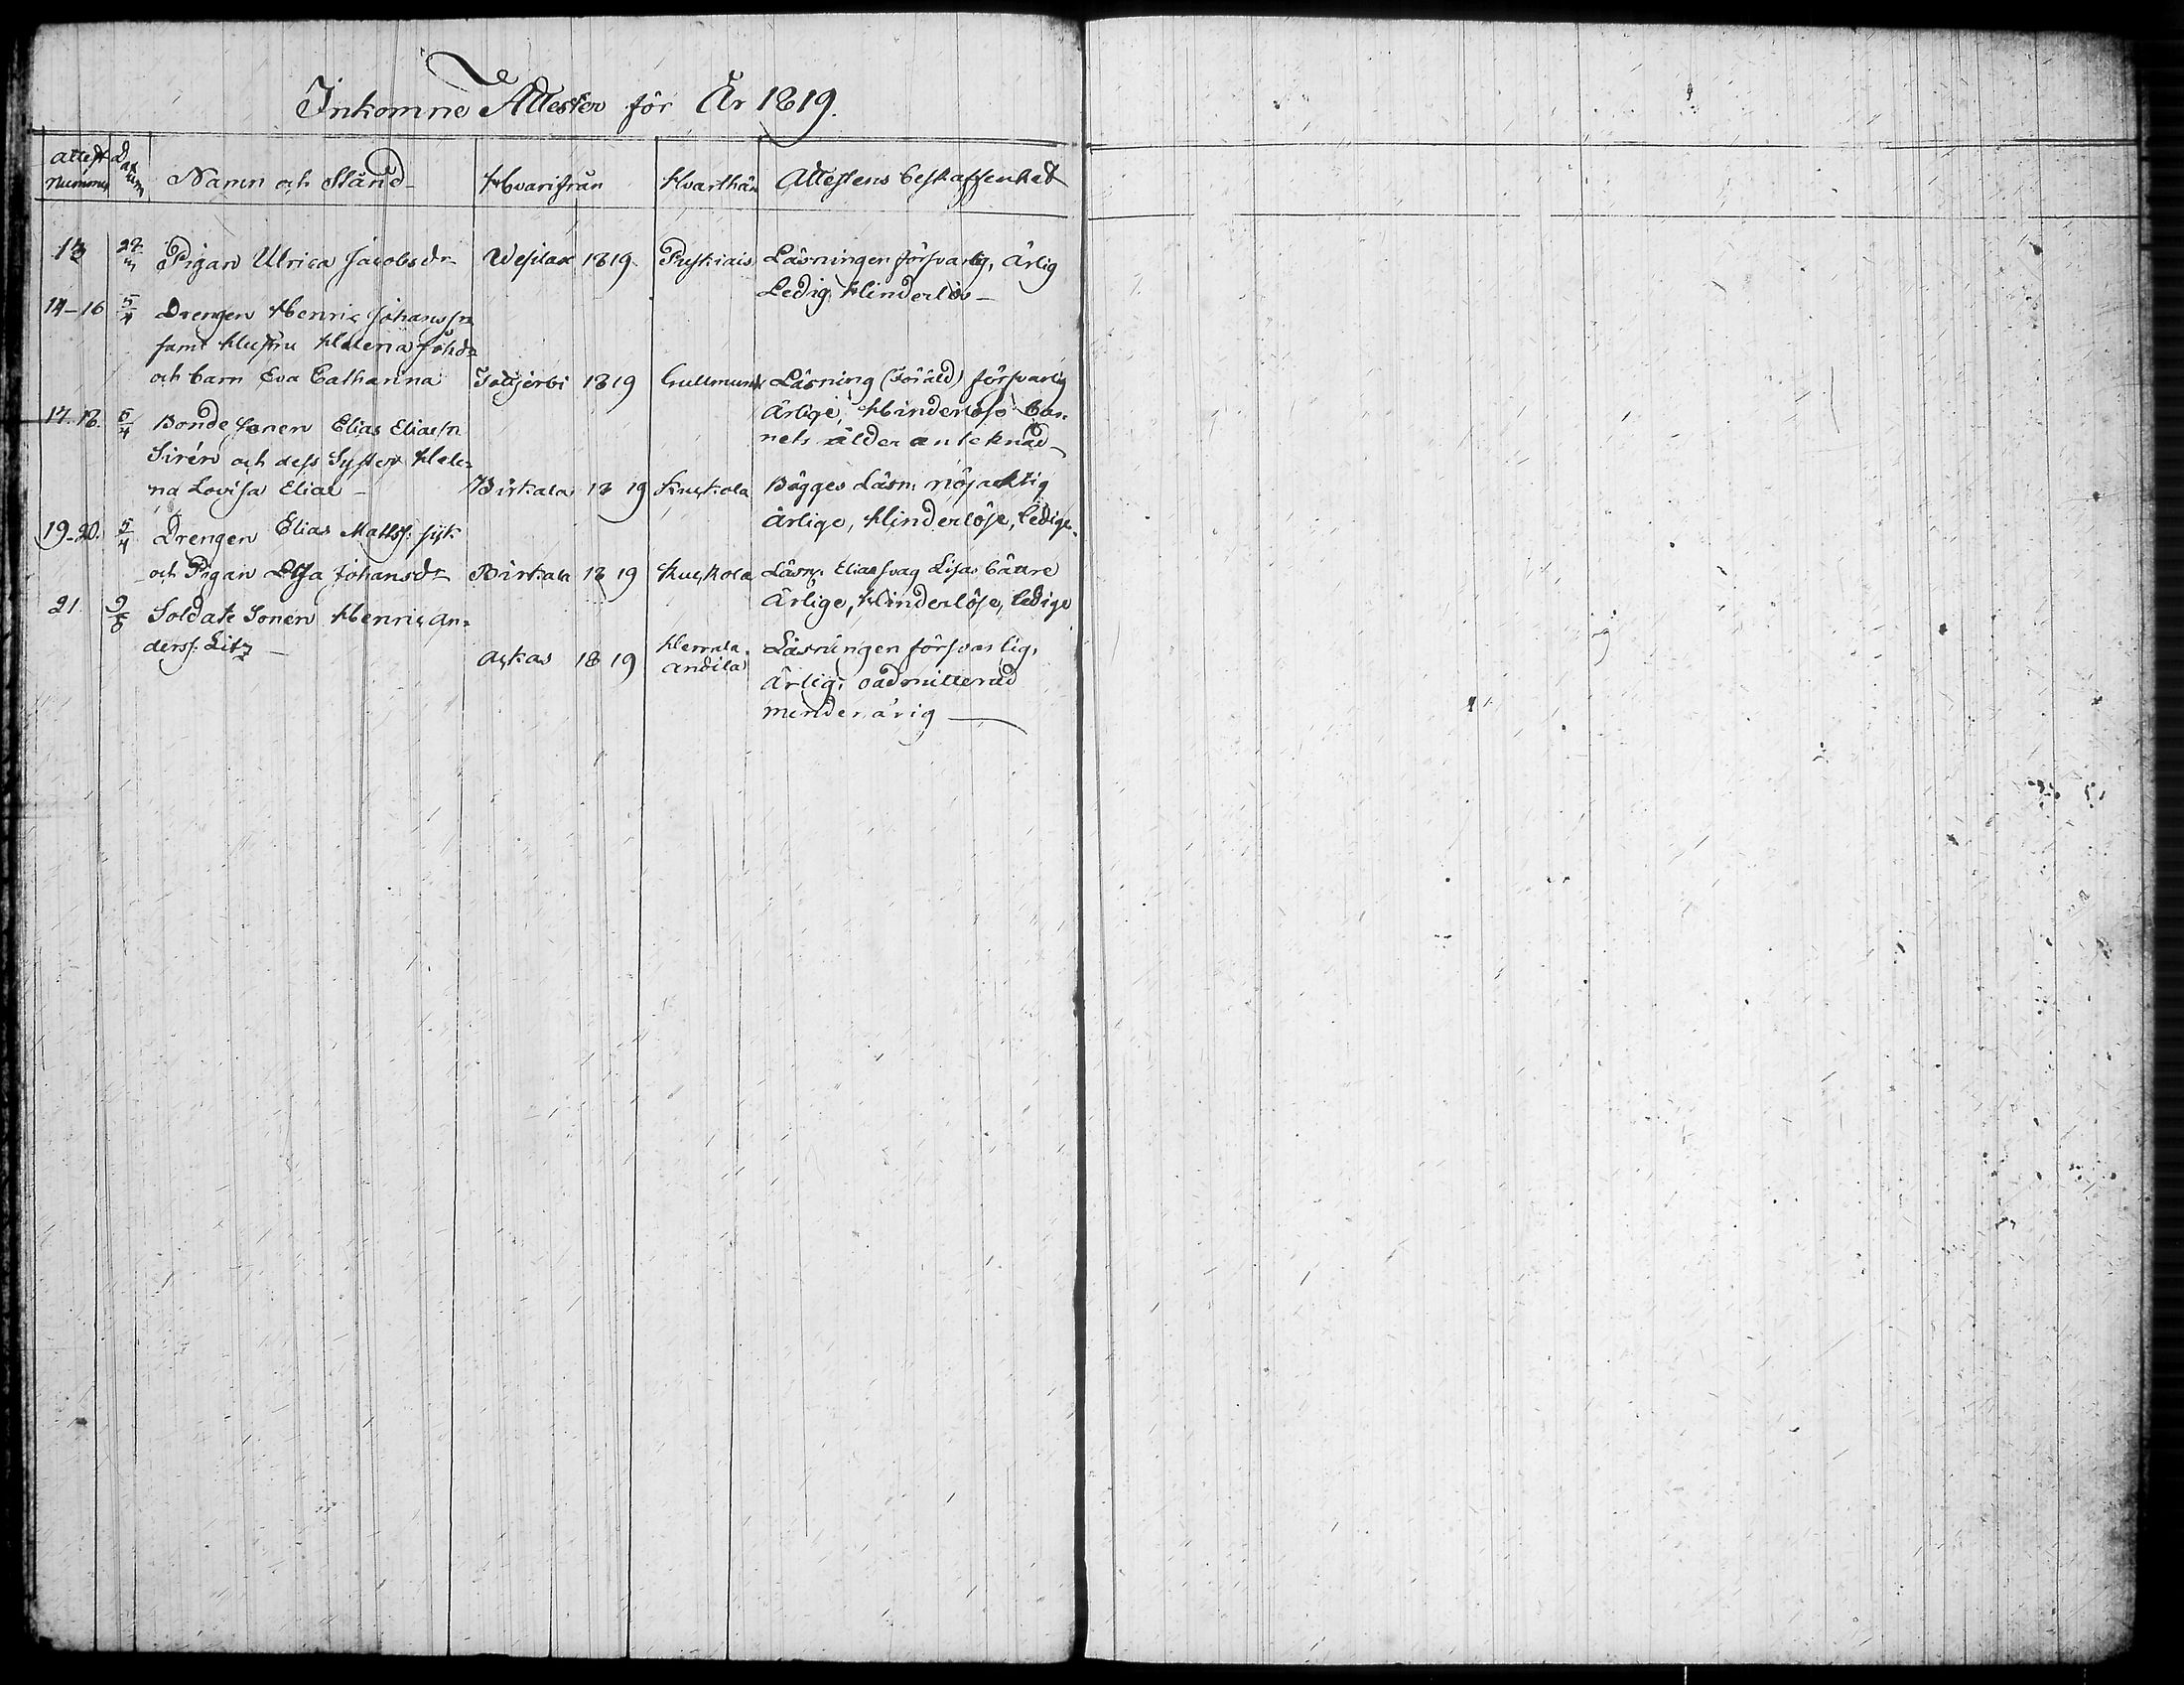 Inkomne Attester för År 1819.
Attest Nummer Datum Namn och Stånd Hvarifrån Hvarthän Attestens beskaffenhet
13 27/3 Pigan Ulrica Jacobsdr Wesilax 1819 Läsningen försvarlig, ärlig
Ledig Hinderlös
14-16 5/4 Drengen Henric Johanssn
samt Hustru Helena Johdr
och barn Eva Catharina 1819 Läsning (Föräld) försvarlig
ärlige, Hinderlöse bar=
nets ålder anteknad
17.18. 5/4 Bonde Sonen Elias Eliassn
Sirén och dess Syster Hele=
na Lovisa Elias Birkala 1819 Kuckola Bägges Läsn. nöjachtig
ärlige, Hinderlöse, ledige.
19-20. 5/4 Drengen Elias Mattss:
och Pigan Lisa Johansdr Birkala 1819 Kuckola Läsn: Elias svag Lisas bättre
ärlige, Hinderlöse, ledige
21 Soldate Sonen Henric An=
derss: Litz Ackas 1819 Herrala Andila Läsningen försvarlig,
ärlig, oadmitterad
minderårig